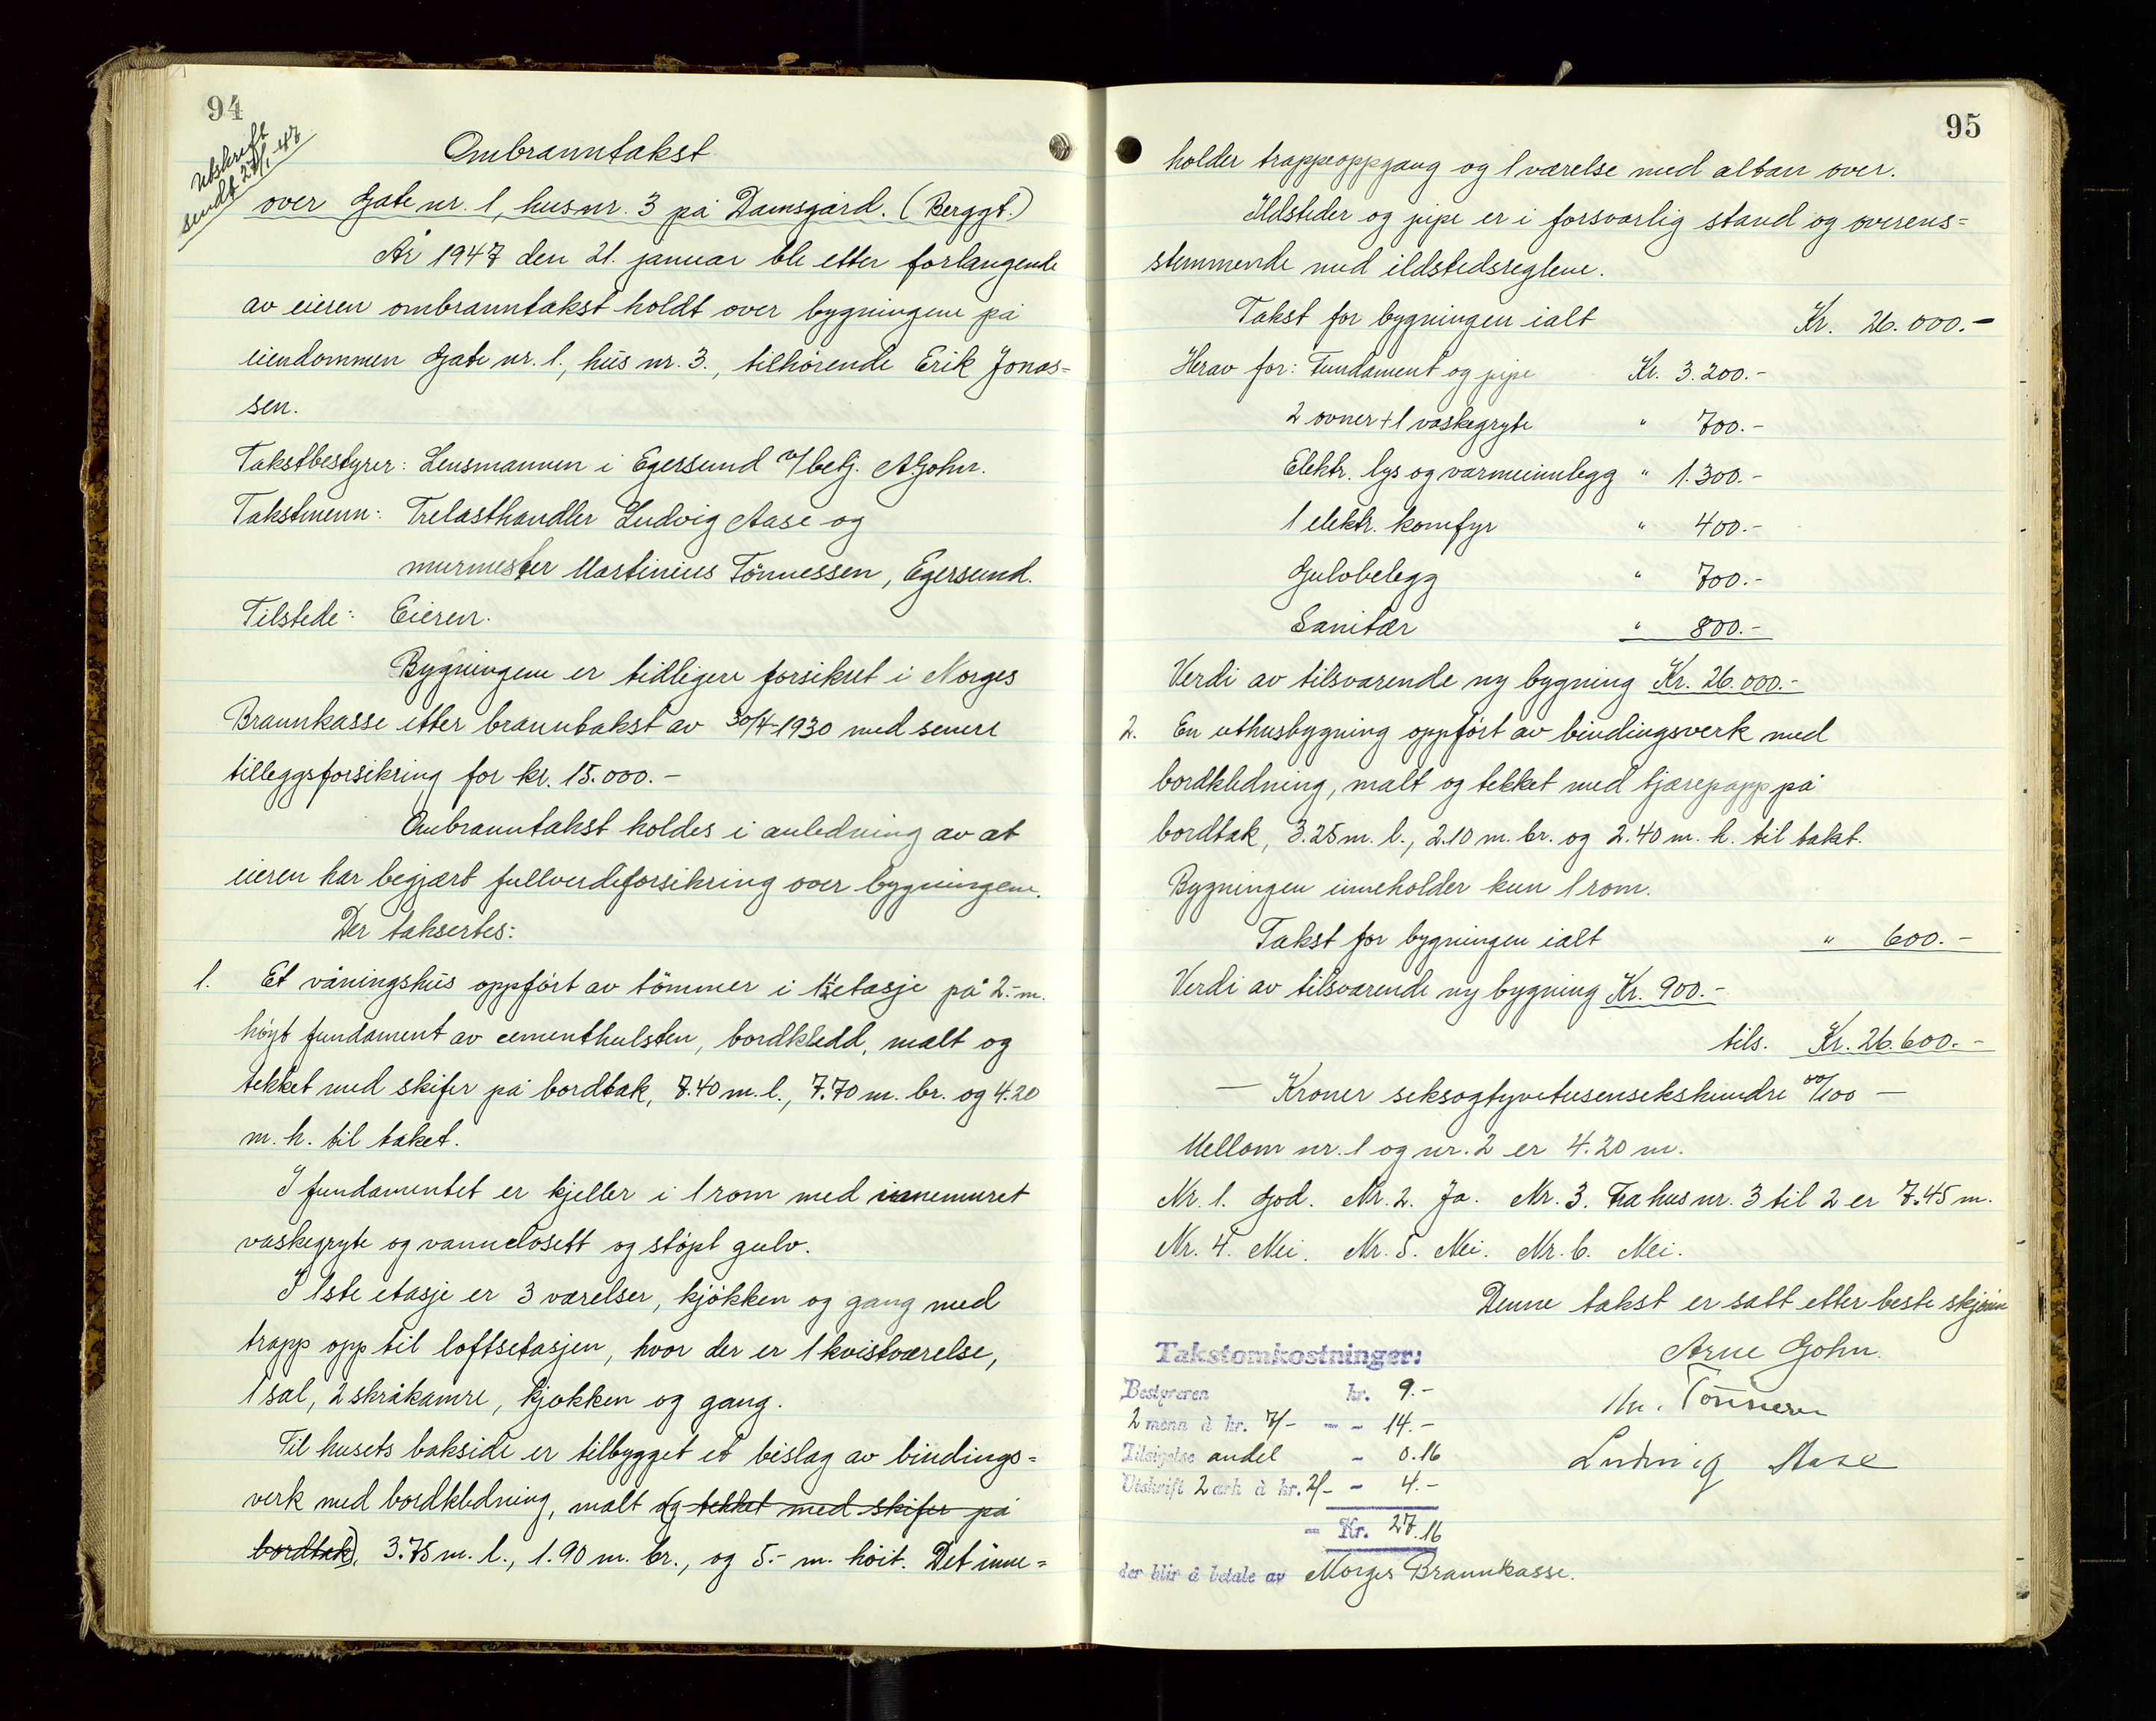 94
Utskrift
sendt 27/1-47
Ombranntakst
over Gate nr. 1, hus nr. 3 på Damsgård. (Berggt.)
År 1947 den 21. januar ble etter forlangende
av eieren ombranntakst holdt over bygningene på
eiendommen Gate nr. 1., hus nr. 3., tilhørende Erik Jonas=
sen.
Takstbestyrer: Lensmannen i Egersund v/betj. A Gohn.
Takstmenn: Trelasthandler Ludvig Aase og
murmester Martinius Tönnessen, Egersund.
Tilstede: Eieren.
Bygningene er tidligere forsikret i Norges
Brannkasse etter branntakst av 30/4-1930 med senere
tilleggsforsikring for kr. 15.000.-
Ombranntakst holdes i anledning av at
eieren har begjært fullverdiforsikring over bygningene.
Der taksertes:
1. Et våningshus oppført av tömmer i 1½ etasje på 2.-m.
høyt fundament av cementhulsten, bordkledd, malt og
tekket med skifer på bordtak, 7.40 m. l., 7.70 m. br. og 4.20
m. h. til taket.
I fundamentet er kjeller i 1 rom med innemuret
vaskegryte og vannclosett og støpt gulv.
I 1ste etasje er 3 værelser, kjökken og gang med
trapp opp til loftsetasjen, hvor der er 1 kvistværelse,
1 sal, 2 skråkamre, kjøkken og gang.
Til husets bakside er tilbygget et bislag av bindings=
verk med bordkledning, malt (og tekket med skifer på
bordtak), 3.75 m. l., 1.90 m. br., og 5.- m. höit. Det inne=
95
holder trappeoppgang og 1 værelse med altan over.
Ildsteder og pipe er i forsvarlig stand og overens=
stemmende med ildstedsreglene.
Takst for bygningen ialt Kr. 26.000.-
Herav for: Fundament og pipe Kr. 3.200.-
2 ovner + 1 vaskegryte " 700.-
Elektr. lys og varmeinnlegg " 1.300.-
1 elektr. komfyr " 400.-
Gulvbelegg " 700.-
Sanitær " 800.-
Verdi av tilsvarende ny bygning Kr. 26.000.-
2. En uthusbygning oppført av bindingsverk med
bordkledning, malt og tekket med tjærepapp på
bordtak, 3.25 m. l., 2.10 m. br. og 2.40 m. h. til takt.
Bygningen inneholder kun 1 rom.
Takst for bygningen ialt " 600.-
Verdi av tilsvarende ny bygning Kr. 900.-
tils. Kr. 26.600.-
- Kroner seksogtyvetusensekshundre 00/100 -
Mellom nr. 1 og nr. 2 er 4.20 m.
Nr. 1. God. Nr. 2. Ja. Nr. 3. Fra hus nr. 3 til 2 er 7.45 m.
Nr. 4. Nei. Nr. 5. Nei. Nr. 6. Nei.
Denne takst er satt etter beste skjønn
Arne Gohn.
M. Tönnesen
Ludvig Aase
Takstomkostninger:
Bestyreren kr. 9.-
2 menn à kr. 7/- - - 14.-
Tilsigelse andel - 0.16
Utskrift 2 ark à kr. 2/- - 4.-
- Kr. 27.16
der blir å betale av Norges Brannkasse.